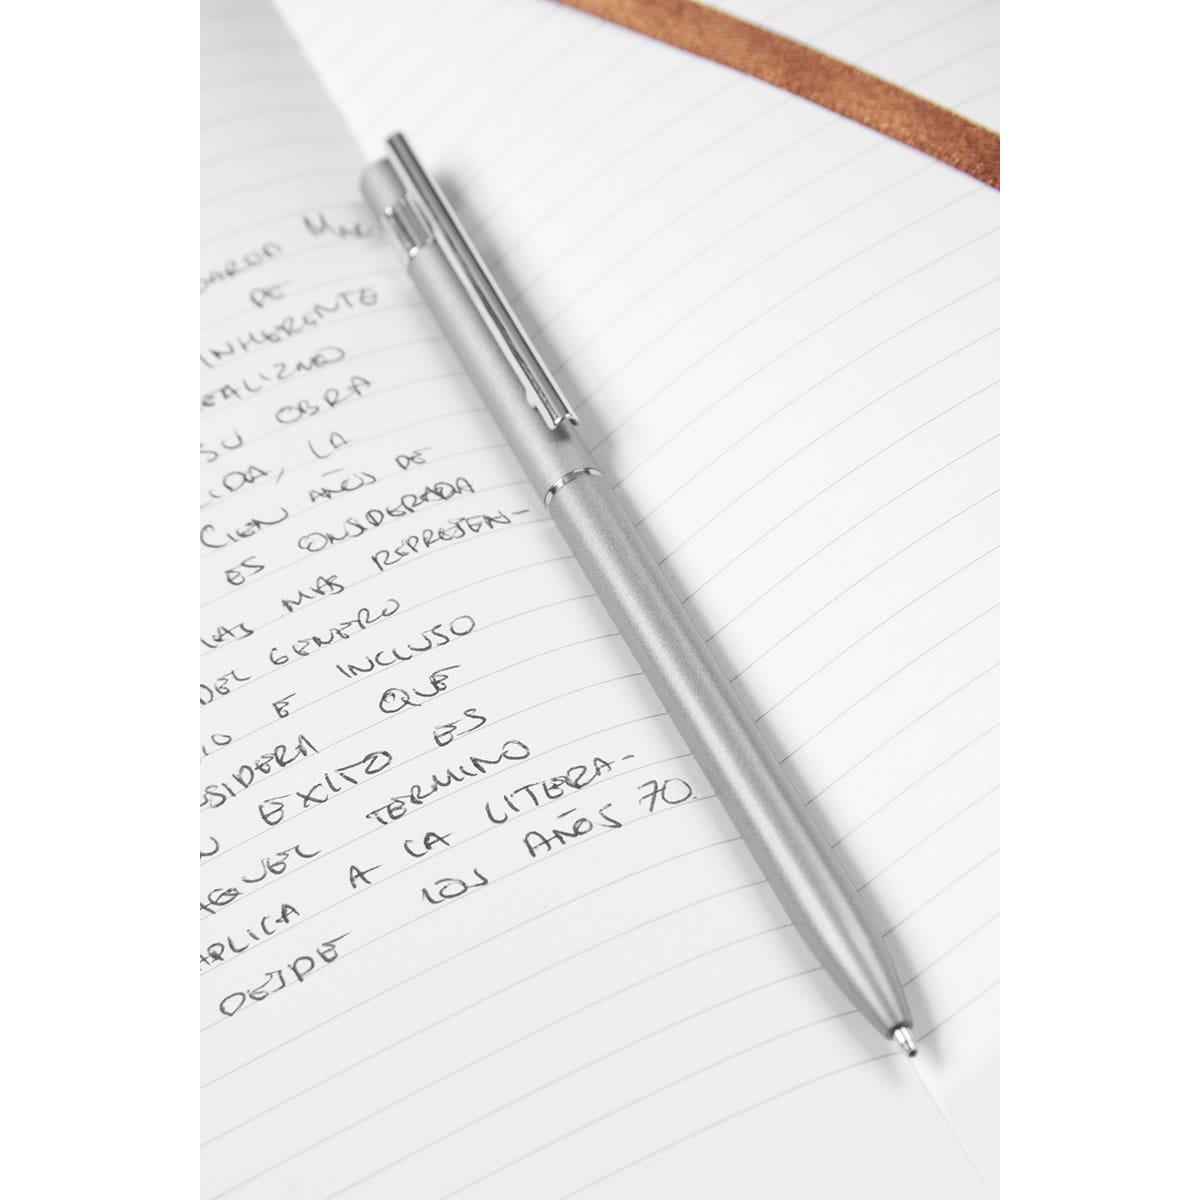 MAR
DE
INHERENTE
REALIZMO
SU OBRA
LA
CIEN AÑOS DE
ES ONSIDERADA
LAS MAS REPRESEN-
DEL GENERO
E INCLUSO
QUE
EXITO ES
AQUEL TERMINO
APLICA A LA LITERA-
DESDE LOS AÑOS 70.